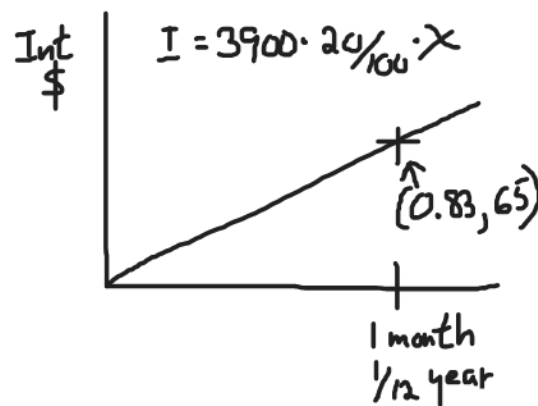 Int
$
I = 3900 · 20/100 · X
(0.83, 65)
1 month
1/12 year